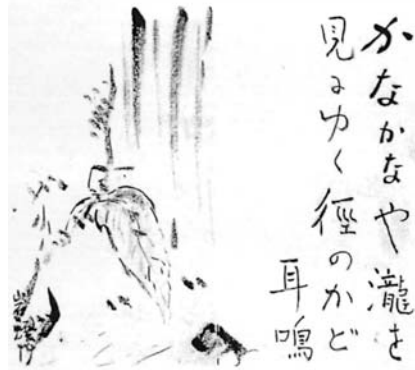 かなかなや瀧を
見にゆく徑のかど
耳鳴